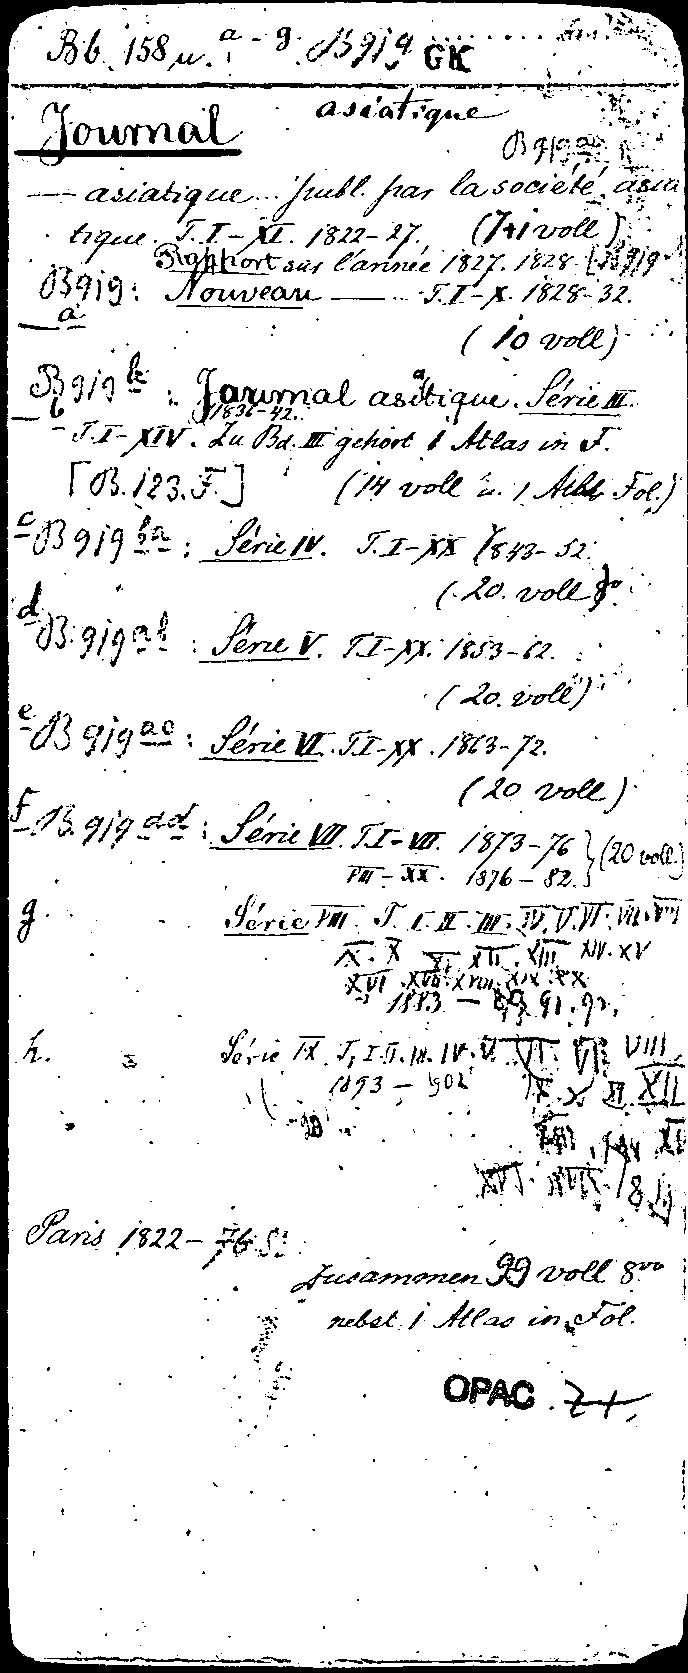 Bb. 158 u. a-g. B 919 GK
Journal asiatique
B 919 a
— asiatique... publ. par la societé asia
tique. T. I-XI. 1822-27. (7+1 voll)
Rapport sur l'année 1827. 1828 [B 919
B 919: Nouveau — T. I-X. 1828-32.
a
(10 voll)
B 919 b : Journal asiatique. Série III.
b 1836-42.
T. I-XIV. Zu Bd. III gehört 1 Atlas in F.
[B. 123. F.] (14 voll u. 1 Fol.)
c B 919 ba : Série IV. T. I-XX 1843-52.
(20. voll 8°
d B 919 ab : Série V. T. I-XX. 1853-62.
(20. voll)
e B 919 ac : Série VI. T. I-XX. 1863-72.
(20 voll)
f B. 919 ad : Série VII. T. I-VII. 1873-76 } (20 voll.)
VIII-XX. 1876-82. }
g. Série VIII. T. I. II. III. IV. V. VI. VII. VIII
IX. X XI XII. XIII XIV. XV
XVI. XVII. XVIII. XIX. XX
1883 — 91. 92.
h. Série IX. T. I. II. III. IV. V. VI. VII. VIII.
1893 — 902 IX. X. XI XII
XIII XV
XVI. XVII.
Paris 1822-76 S:
Zusammen 99 voll 8vo
nebst 1 Atlas in Fol.
OPAC Z+.